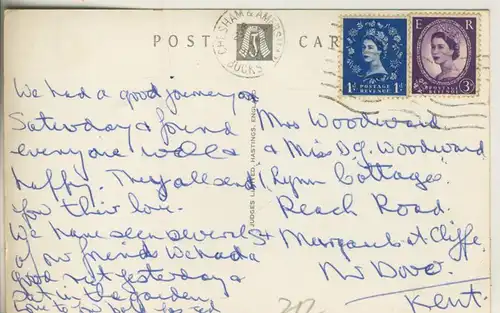 POST CARD
CHESHAM & AMERSHAM
BUCKS
1D POSTAGE REVENUE 1D
E R
POSTAGE REVENUE 3D
JUDGES LIMITED, HASTINGS, ENGLAND
We had a good journey on
Saturday & found
everyone well &
happy. They all send
you their love.
We have seen several
of our friends We had a
good rest yesterday &
sat in the garden.
Love to you both
Mrs Woodward
& Miss D.G. Woodward
Cottages
Reach Road.
Margaret at Cliffe
Nr Dover.
Kent.